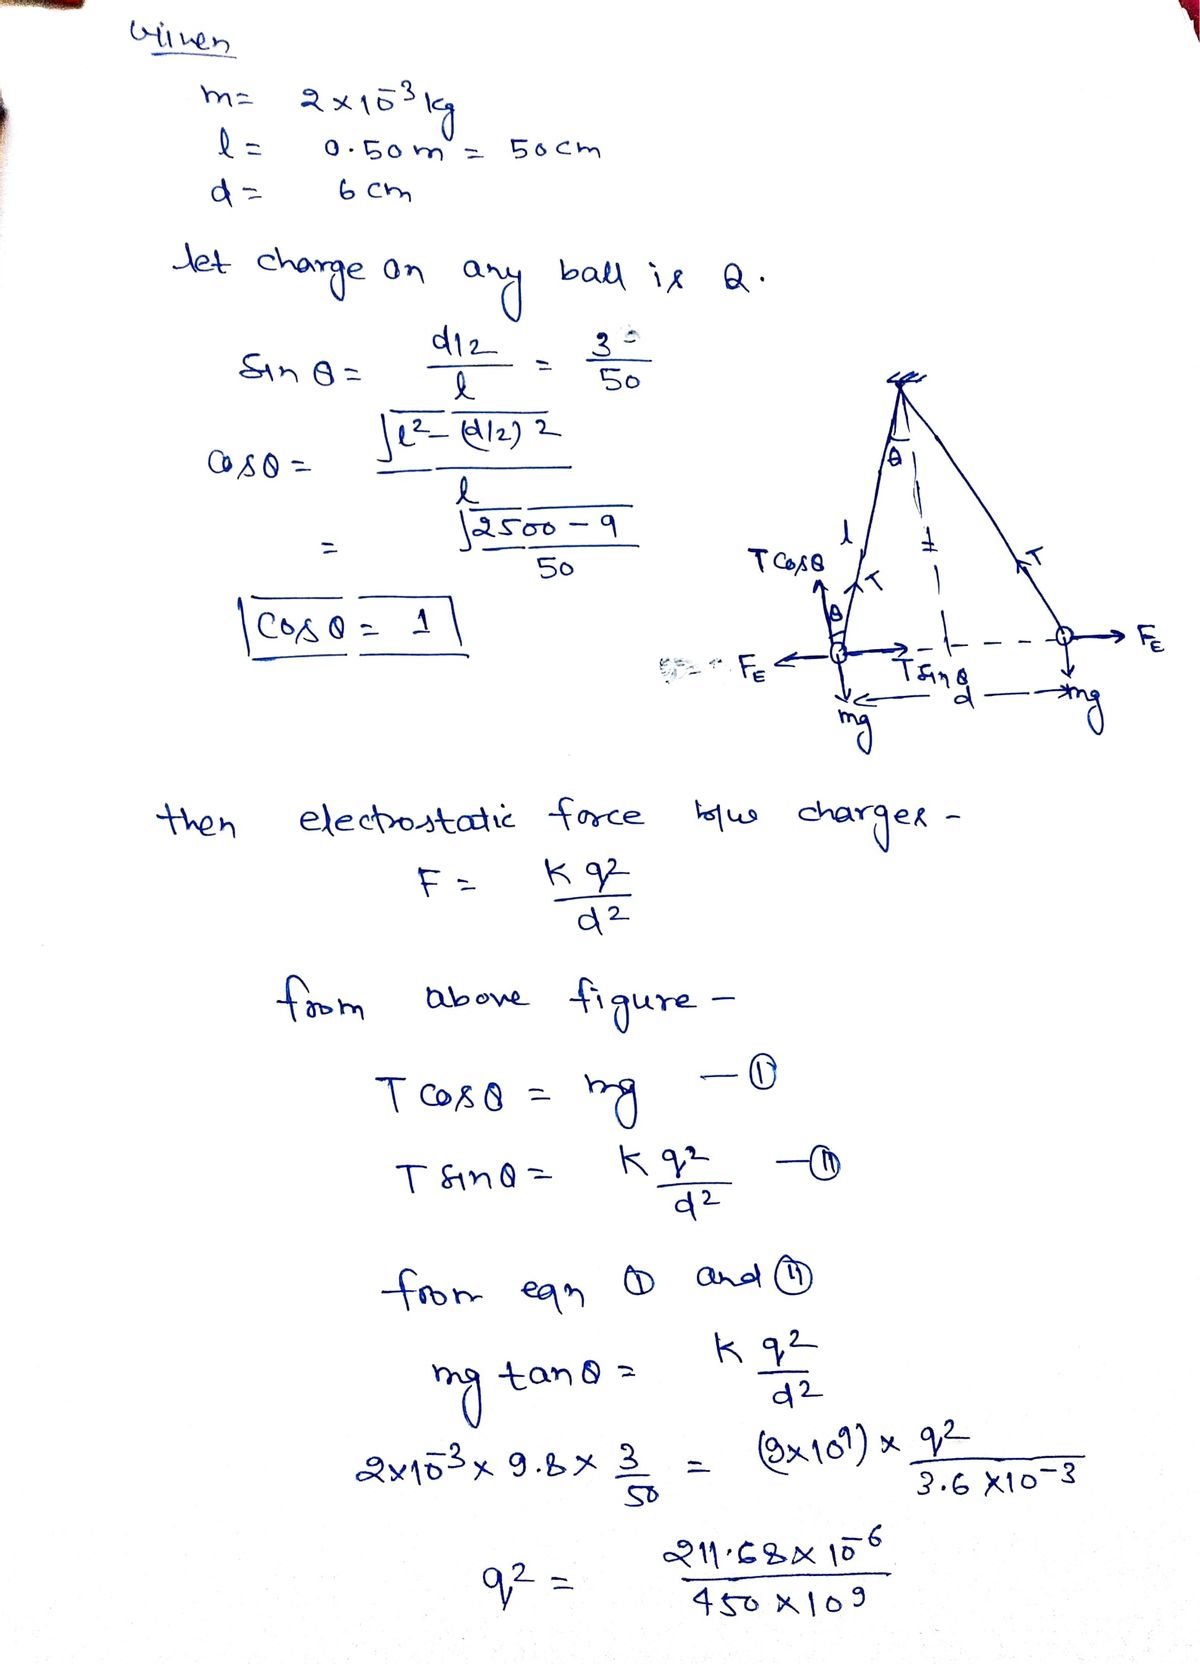 Given
m = 2 × 10⁻³ kg
l = 0.50 m = 50 cm
d = 6 cm
let charge on any ball is Q.
Sin θ = (d/2)/l = 3/50
Cos θ = √(l² - (d/2)²)/l
= √(2500 - 9)/50
Cos θ = 1
θ
l
T Cos θ
T
T
θ
F_E
T Sin θ
F_E
d
mg
mg
then electrostatic force b/w charges -
F = K q²/d²
from above figure -
T Cos θ = mg - ①
T Sin θ = K q²/d² - ⑪
from eqn ① and ⑪
mg tan θ = K q²/d²
2×10⁻³ × 9.8 × 3/50 = (9×10⁹) × q²/(3.6 × 10⁻³)
q² = (211.68 × 10⁻⁶)/(450 × 10⁹)